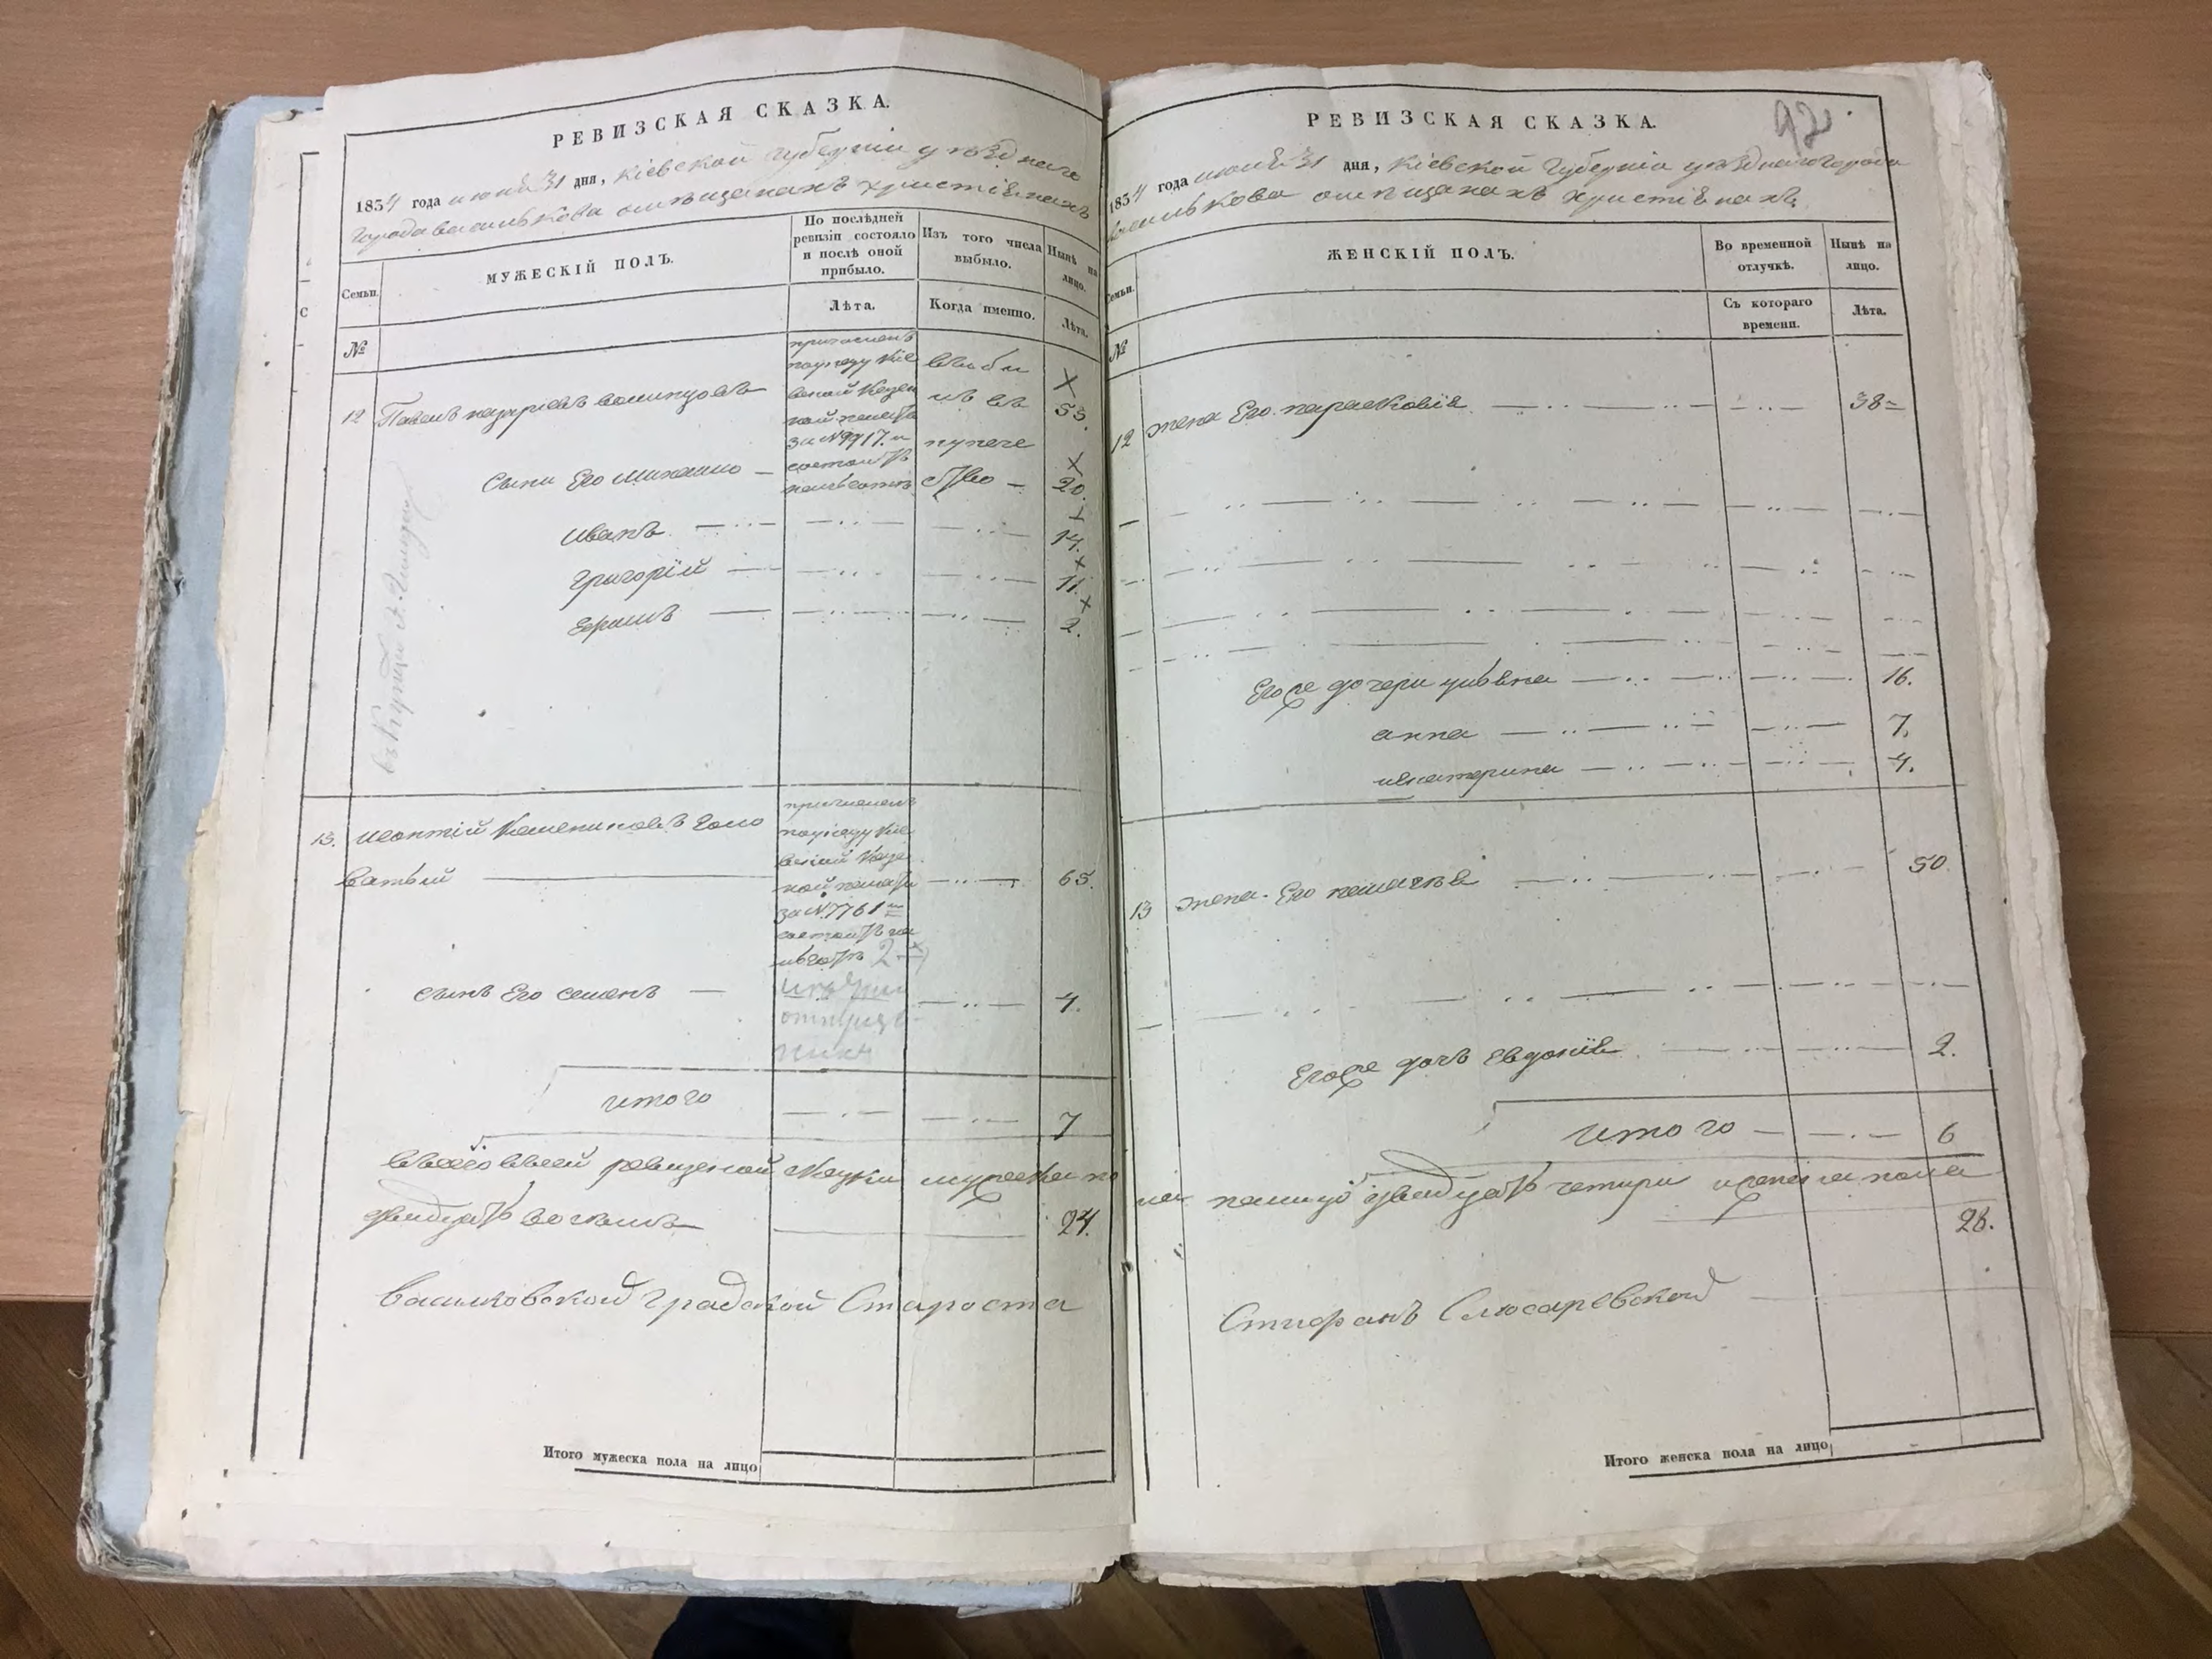 РЕВИЗСКАЯ СКАЗКА.
1854 года июня 31 дня, Кіевской губерніи уѣзднаго
города василькова омѣщанахъ христіянахъ
Семьи.
МУЖЕСКІЙ ПОЛЪ.
По послѣдней ревизіи состояло и послѣ оной прибыло.
Изъ того числа выбыло.
Нынѣ на лицо.
Лѣта.
Когда именно.
Лѣта.
№
12 Павелъ назаріевъ
причисленъ
поуказу Кіев
ской Казен
ной палаты
за №9717. и
состоитъ
выбы
лъ въ
купече
ство
53.
Сыни Его михаило 20.
иванъ 14.
Григорій 11.
2.
въ купцы
13. леонтій Голо
ватый
причисленъ
поуказу Кіев
ской Казен
ной палаты
за №7761 и
состоитъ
65.
сынъ Его семенъ 4.
итого 7
всего въсей ревизской сказки мужеска по
двадцать восемь 24.
васильковской градской Староста
Итого мужеска пола на лицо
РЕВИЗСКАЯ СКАЗКА.
92.
1854 года июня 31 дня, Кіевской Губерніи уѣзднаго города
василькова омѣщанахъ христіянахъ
Семьи.
ЖЕНСКІЙ ПОЛЪ.
Во временной отлучкѣ.
Нынѣ на лицо.
Съ котораго времени.
Лѣта.
№
12 жена Его парасковія 38
Егоже дочери уліяна 16.
анна 7.
икатерина 4.
13 жена Его 50.
Егоже дочь Евдокія 2.
итого 6
ла налицо двадцать четыри иженска пола
28.
Стефанъ Слюсаревской
Итого женска пола на лицо